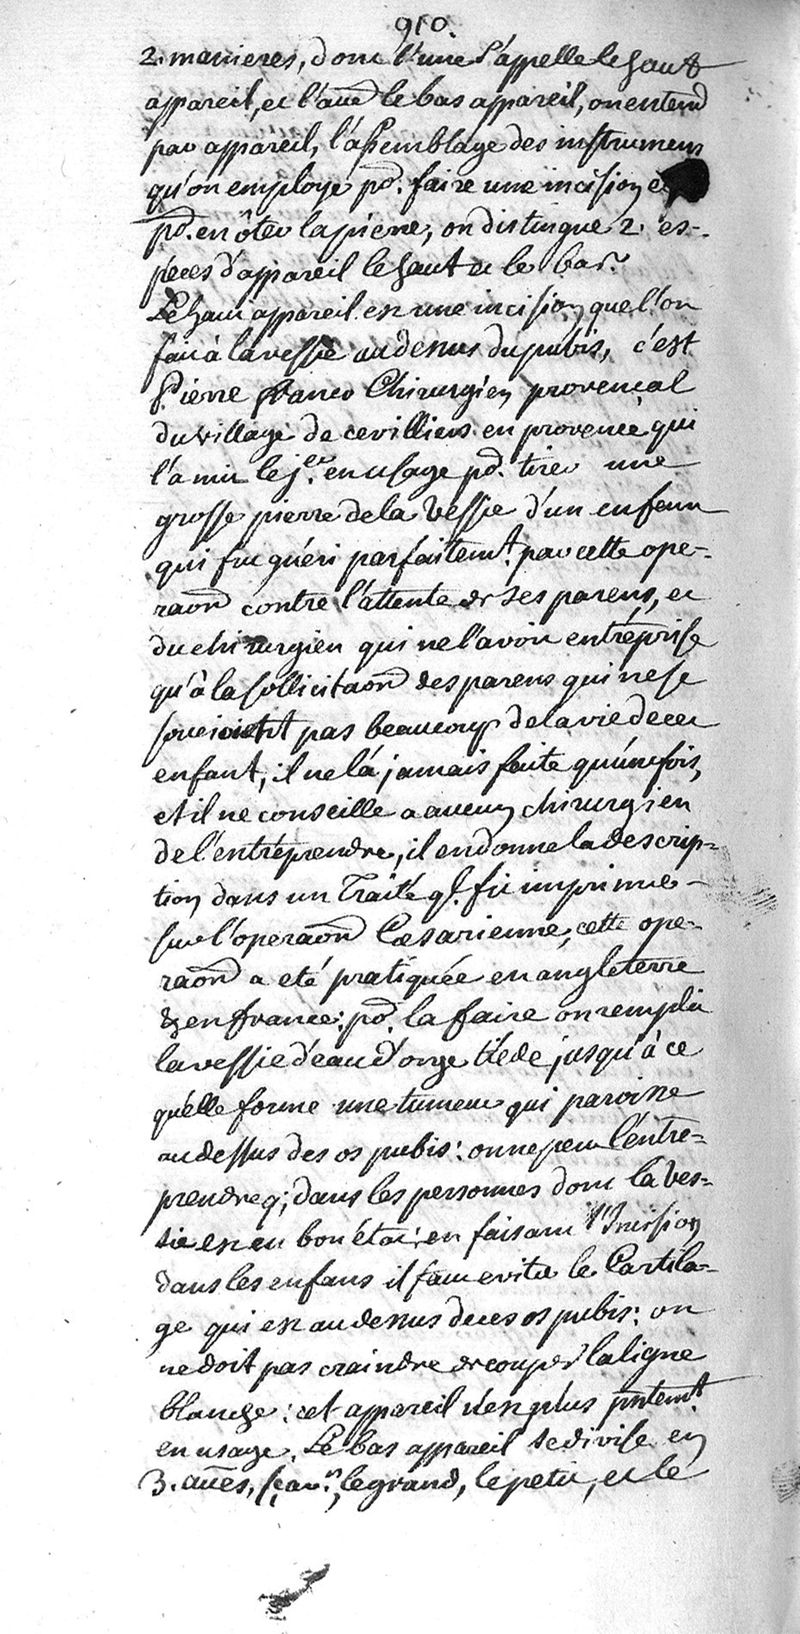 910.
2. manieres, dont l'une s'appelle le haut
appareil, et l'aūe le bas appareil, on entend
par appareil, l'assemblage des instrumens
qu'on employe pr. faire une incision et
pr. en ôter la pierre, on distingue 2. es-
peces d'appareil le haut et le bas.
Le haut appareil est une incision que l'on
fait à la vessie au dessus du pubis, c'est
Pierre franco Chirurgien provençal
du village de cevilliers en provence qui
l'a mis le 1er. en usage pr. tirer une
grosse pierre de la Vessie d'un enfant
qui fut guéri parfaitemt. par cette ope-
raōn contre l'attente de ses parens, et
du chirurgien qui ne l'avoit entreprise
qu'à la sollicitaōn des parens qui ne se
soucioient pas beaucoup de la vie de cet
enfant, il ne l'à jamais faite qu'une fois,
et il ne conseille a aucun chirurgien
de l'entreprendre, il en donne la descrip-
tion dans un Traité ql. fit imprimer
sur l'operaōn Cæsarienne, cette ope-
raōn a eté pratiquée en angleterre
& en france: pr. la faire on remplit
la vessie d'eau d'orge tiéde jusqu'à ce
qu'elle forme une tumeur qui paroisse
au dessus des os pubis: on ne peut l'entre-
prendre q; dans les personnes dont la ves-
sie est en bon état: en faisant l'Incision
dans les enfans il faut eviter le Cartila-
ge qui est au dessus de ces os pubis: on
ne doit pas craindre de couper la ligne
blanche: cet appareil n'est plus pñtemt.
en usage. Le bas appareil se divise en
3. aūes, sçavr., le grand, le petit, et le